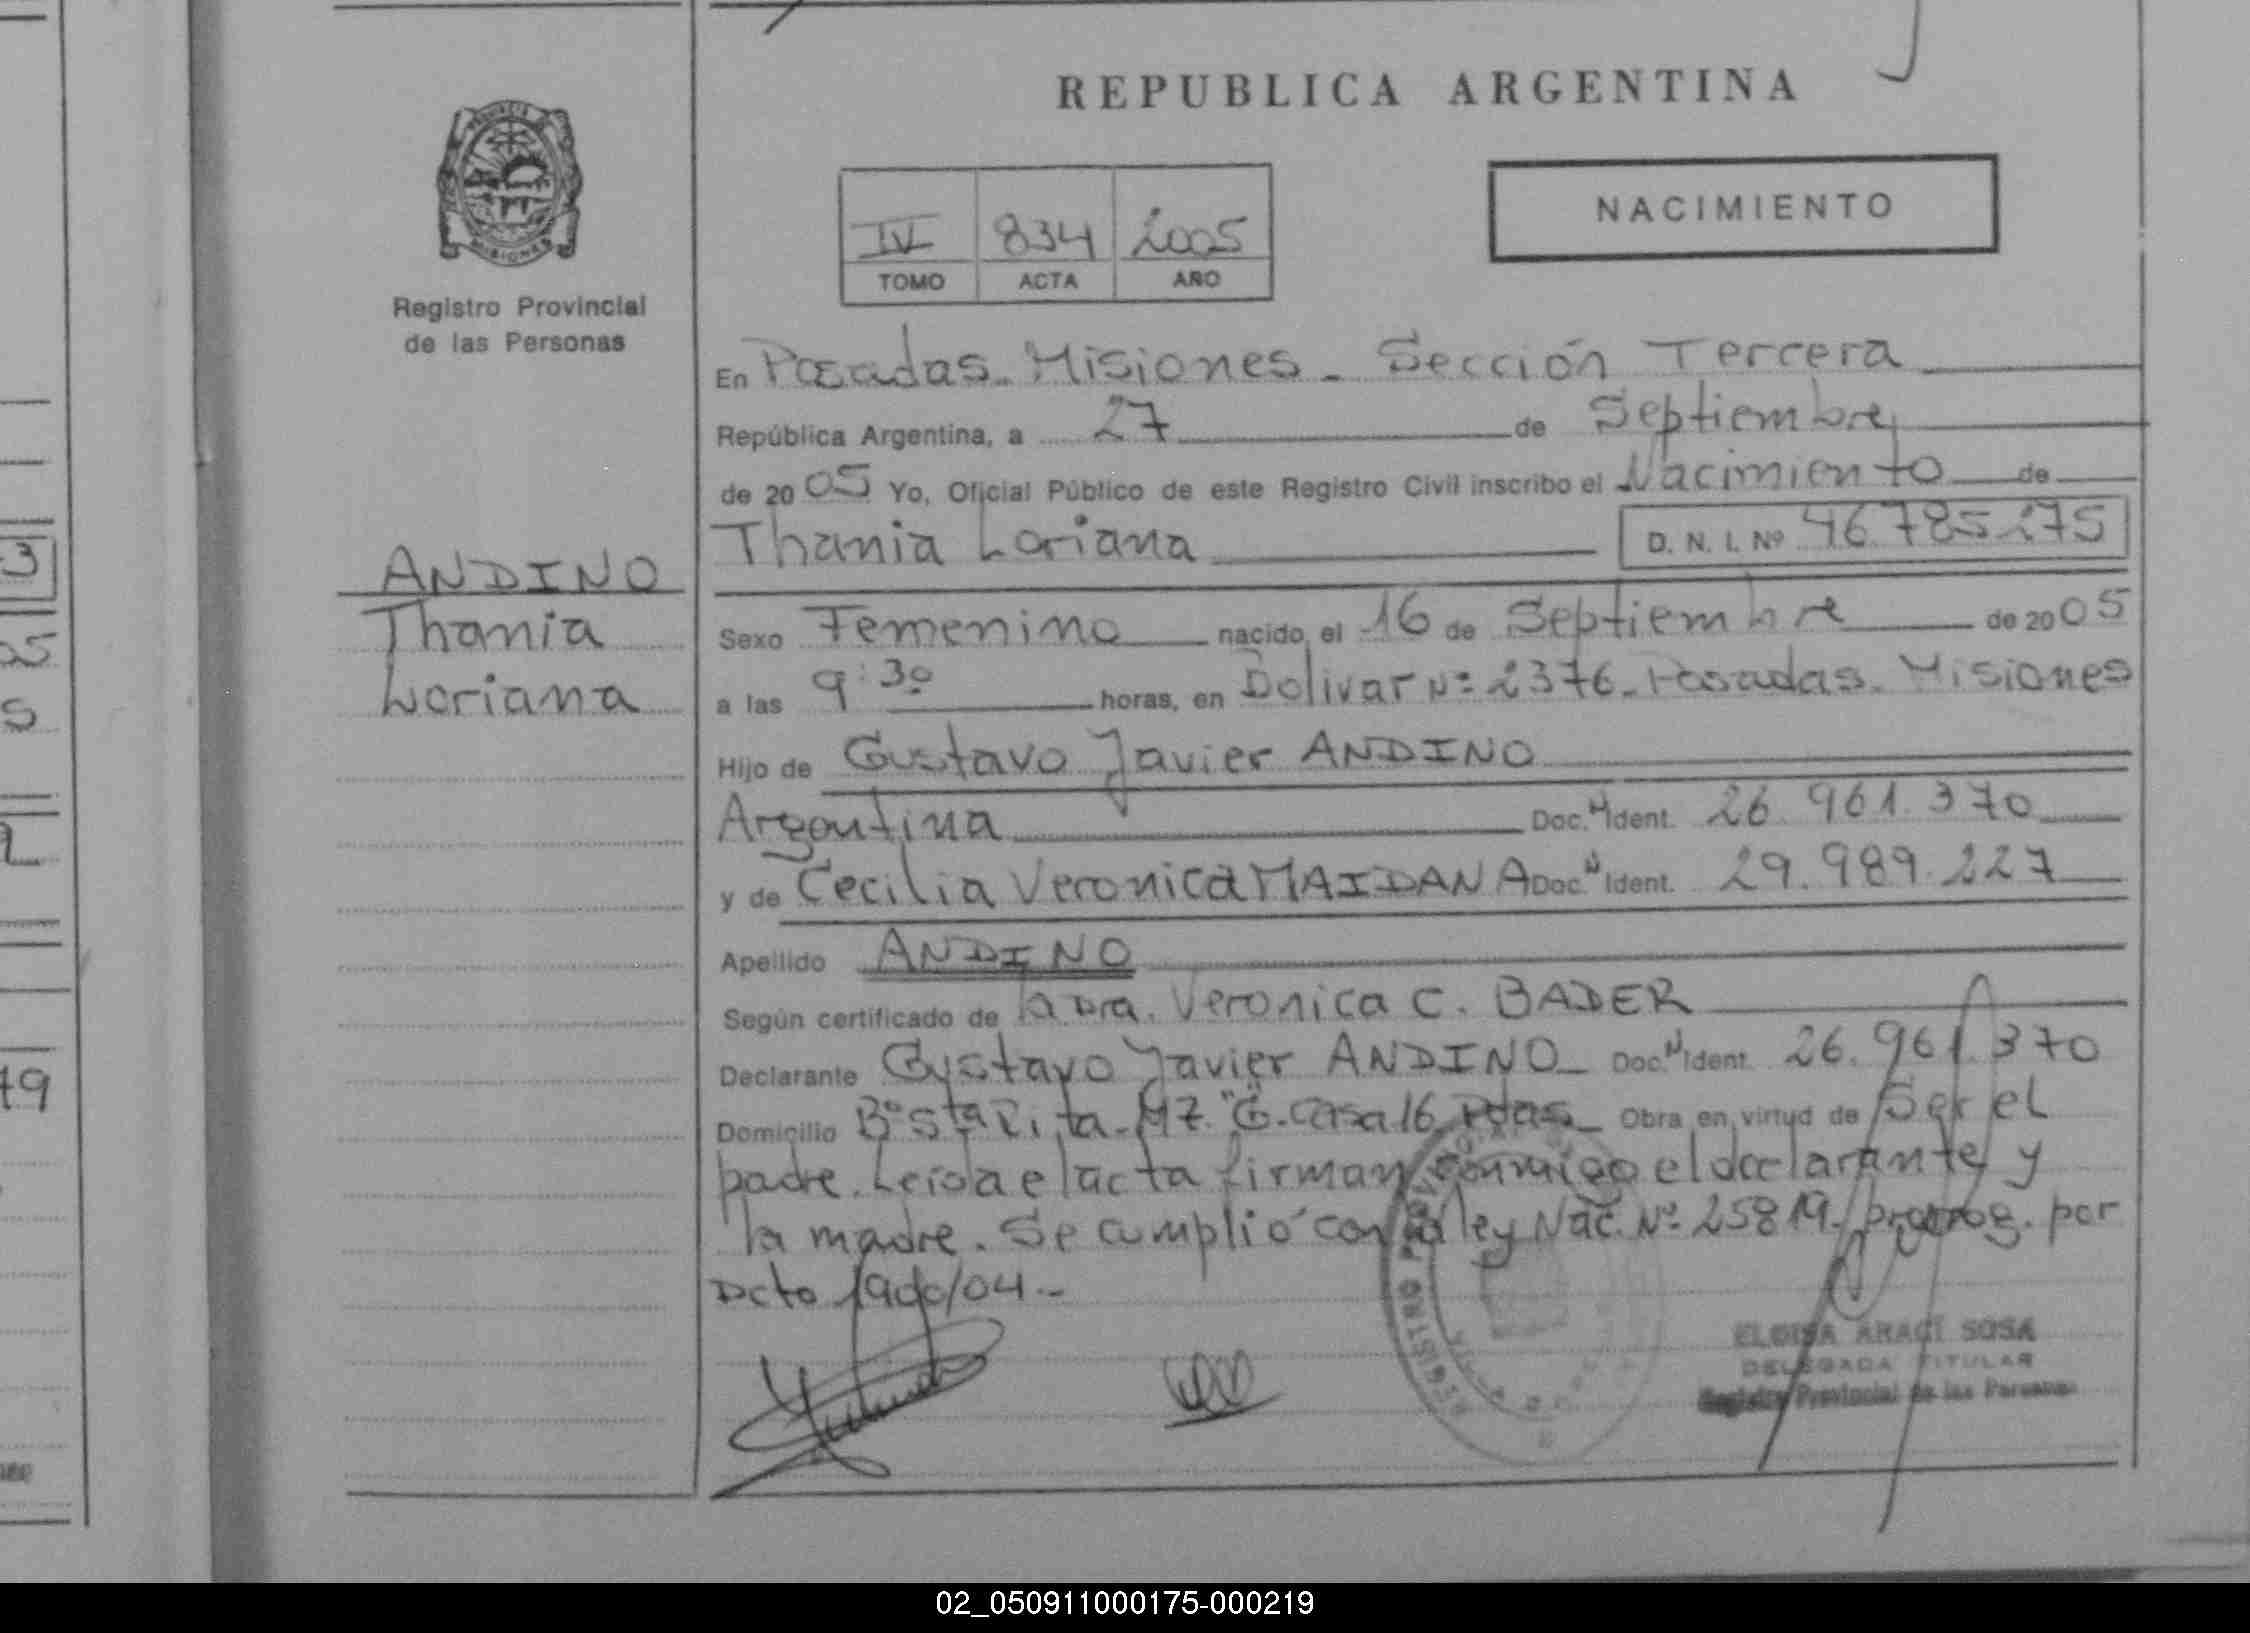 REPUBLICA ARGENTINA
NACIMIENTO
IV 834 2005
TOMO ACTA AÑO
PROVINCIA
MISIONES
Registro Provincial
de las Personas
ANDINO
Thania
Loriana
En Posadas. Misiones. Sección Tercera
República Argentina, a 27 de Septiembre
de 2005 Yo, Oficial Público de este Registro Civil inscribo el Nacimiento de
Thania Loriana D. N. I. Nº 46.785.275
Sexo Femenino nacido el 16 de Septiembre de 2005
a las 9:30 horas, en Bolivar Nº 2376. Posadas. Misiones
Hijo de Gustavo Javier ANDINO
Argentina Doc. N Ident. 26.961.370
y de Cecilia Veronica MAIDANA Doc. N Ident. 29.989.227
Apellido ANDINO
Según certificado de la Dra. Veronica C. BADER
Declarante Gustavo Javier ANDINO Doc. N Ident. 26.961.370
Domicilio Bº Sta Rita. MZ. "G. casa 16 Pdas Obra en virtud de Ser el
padre. Leída el acta firman conmigo el declarante y
la madre. Se cumplió con la ley Nac. Nº 25819. prorrog. por
Dcto 1900/04.-
ELOISA ARACI SOSA
DELEGADA TITULAR
Registro Provincial de las Personas
02_050911000175-000219